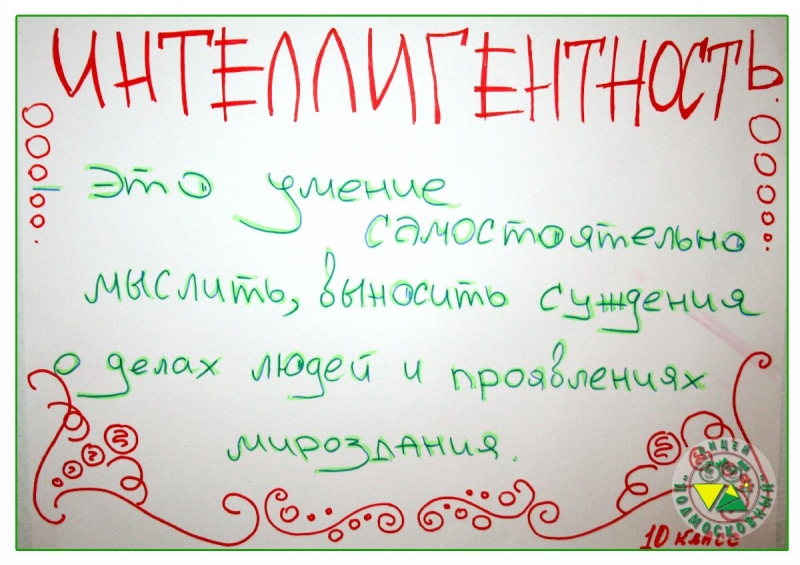 ИНТЕЛЛИГЕНТНОСТЬ
- это умение
самостоятельно
мыслить, выносить суждения
о делах людей и проявлениях
мироздания.
ЛИЦЕЙ
"ПОДМОСКОВНЫЙ"
10 класс